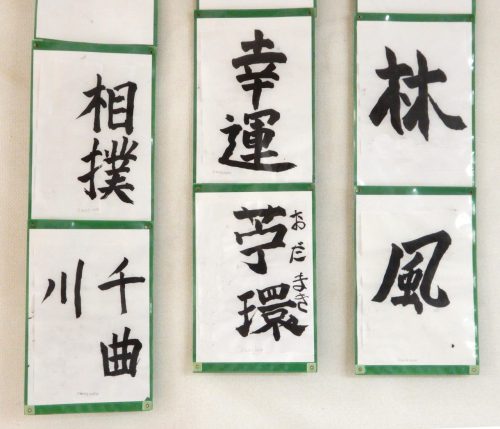 林
風
幸運
苧環
おだまき
相撲
千曲
川